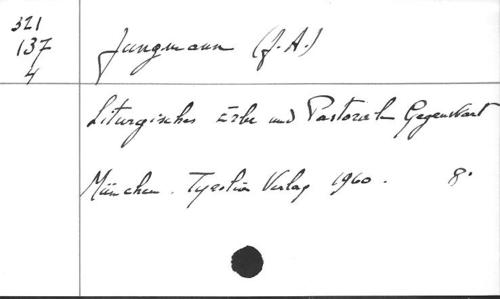 321
137
4
Jungmann (J.A.)
Liturgisches Erbe und Pastorale Gegenwart
München. Tyrolia Verlag 1960. 8°